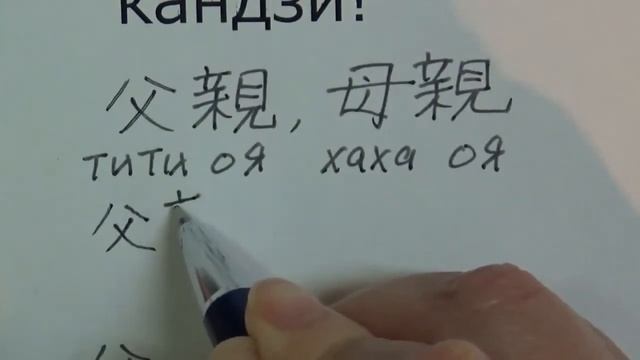 кандзи!
父親, 母親
тити оя хаха оя
父